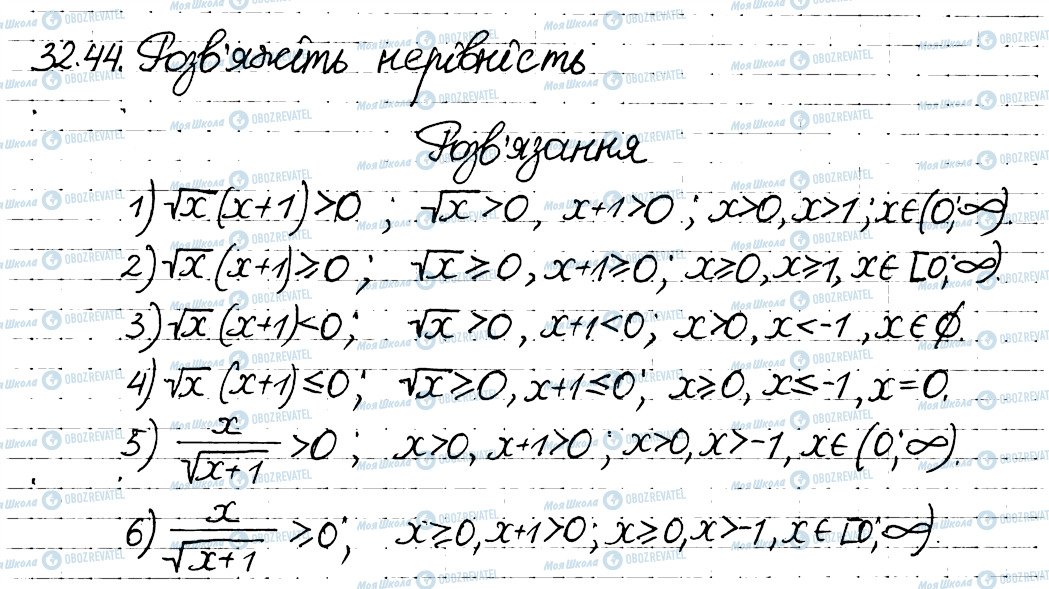 32.44. Розв'яжіть нерівність
Розв'язання
1) √x (x+1)>0 ; √x >0, x+1>0 ; x>0, x>1 ; x∈(0;∞).
2) √x (x+1)≥0 ; √x ≥0, x+1≥0 ; x≥0, x≥1, x∈ [0;∞).
3) √x (x+1)<0 ; √x >0, x+1<0 ; x>0, x<-1 , x∈∅.
4) √x (x+1)≤0 ; √x ≥0, x+1≤0 ; x≥0, x≤-1, x=0.
5) x/√(x+1) >0 ; x>0, x+1>0 ; x>0, x>-1, x∈ (0;∞).
6) x/√(x+1) ≥0 ; x≥0, x+1>0 ; x≥0, x>-1, x∈ [0;∞).